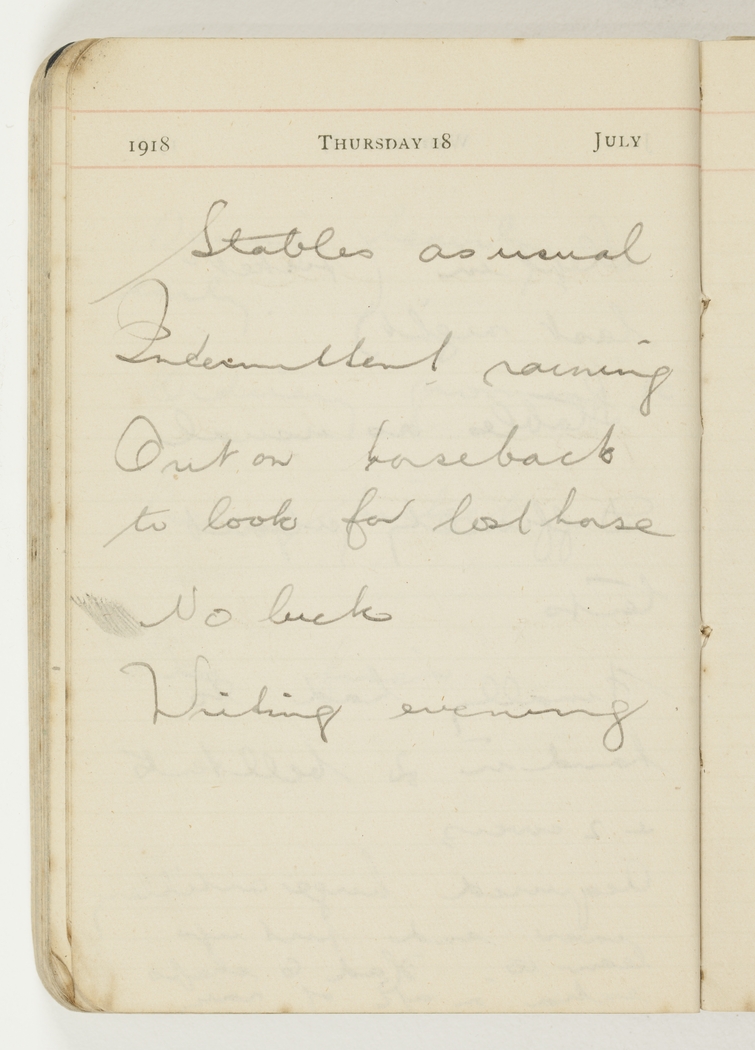 1918 THURSDAY 18 JULY
Stables as usual
Intermittent raining
Out on horseback
to look for lost horse
No luck
Writing evening